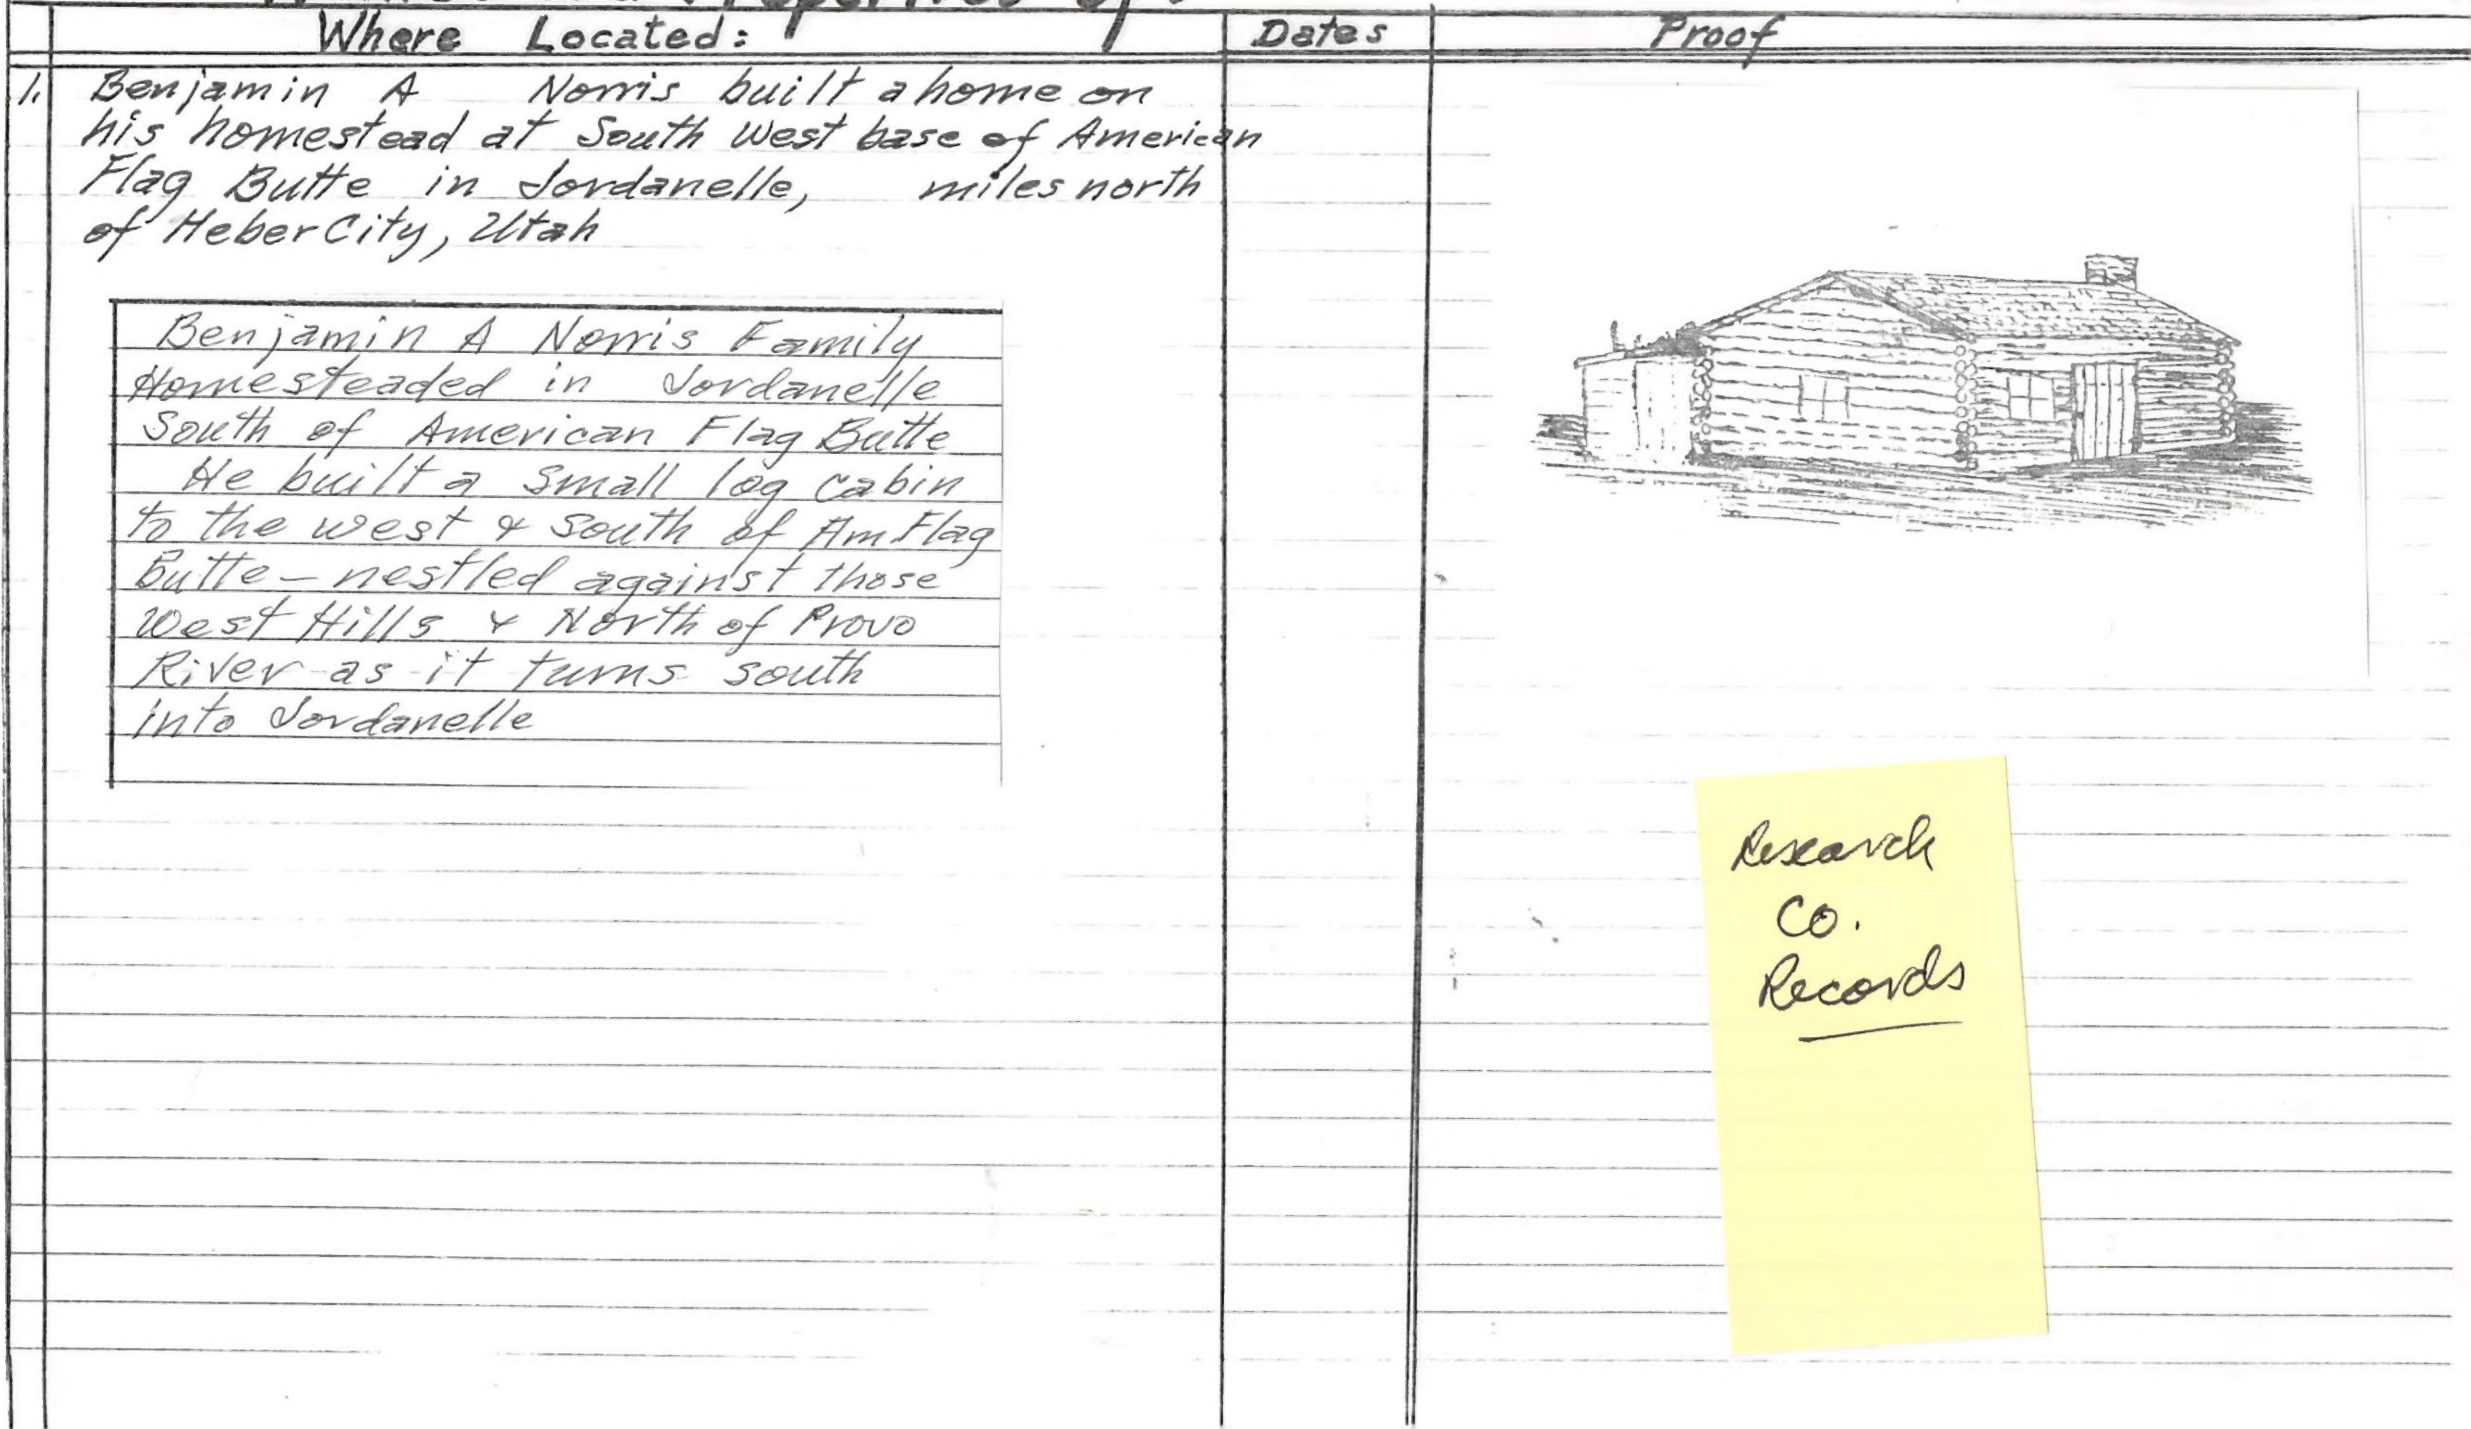 Properties of:
Where Located:
Dates
Proof
1. Benjamin A Norris built a home on
his homestead at South West base of American
Flag Butte in Jordanelle, miles north
of Heber City, Utah
Benjamin A Norris Family
Homesteaded in Jordanelle
South of American Flag Butte
He built a small log cabin
to the west & south of Am Flag
Butte - nestled against those
West Hills & North of Provo
River as it turns south
into Jordanelle
Research
Co.
Records